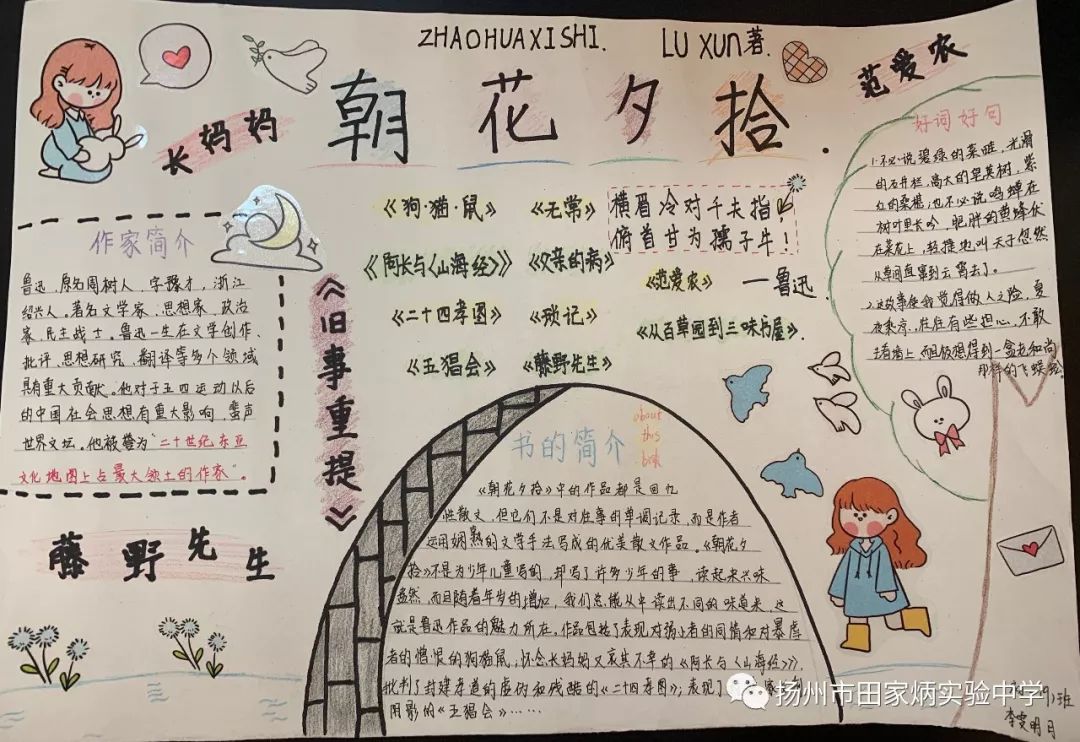 ZHAOHUAXISHI.
LU XUN著.
朝花夕拾.
长妈妈
范爱农
《狗·猫·鼠》
《无常》
《阿长与〈山海经〉》
《父亲的病》
《二十四孝图》
《琐记》
《五猖会》
《藤野先生》
横眉冷对千夫指!
俯首甘为孺子牛!
——鲁迅.
《范爱农》
《从百草园到三味书屋》.
作家简介
鲁迅,原名周树人,字豫才,浙江
绍兴人。著名文学家、思想家、政治
家、民主战士。鲁迅一生在文学创作、
批评、思想研究、翻译等多个领域
具有重大贡献。他对于五四运动以后
的中国社会思想有重大影响,蜚声
世界文坛。他被誉为“二十世纪东亚
文化地图上占最大领土的作家”。
《旧事重提》
藤野先生
好词好句
1.不必说碧绿的菜畦,光滑
的石井栏,高大的皂荚树,紫
红的桑椹;也不必说鸣蝉在
树叶里长吟,肥胖的黄蜂伏
在菜花上,轻捷地叫天子忽然
从草间直窜到云霄去了。
2.这故事使我觉得做人之险,夏
夜乘凉,往往有些担心,不敢
去看墙上,而且极想得到一盒老和尚
那样的飞蜈蚣
书的简介
about
this
book
《朝花夕拾》中的作品都是回忆
性散文,但它们不是对往事的单调记录,而是作者
运用娴熟的文学手法写成的优美散文作品。《朝花夕
拾》不是为少年儿童写的,却写了许多少年的事,读起来兴味
盎然,而且随着年岁的增加,我们总能从中读出不同的味道来,这
就是鲁迅作品的魅力所在。作品包括了表现对弱小者的同情和对暴虐
者的憎恨的狗猫鼠;怀念长妈妈又哀其不幸的《阿长与〈山海经〉》;
批判了封建孝道的虚伪和残酷的《二十四孝图》;表现了
阴影的《五猖会》……
扬州市田家炳实验中学
班
李雯明月